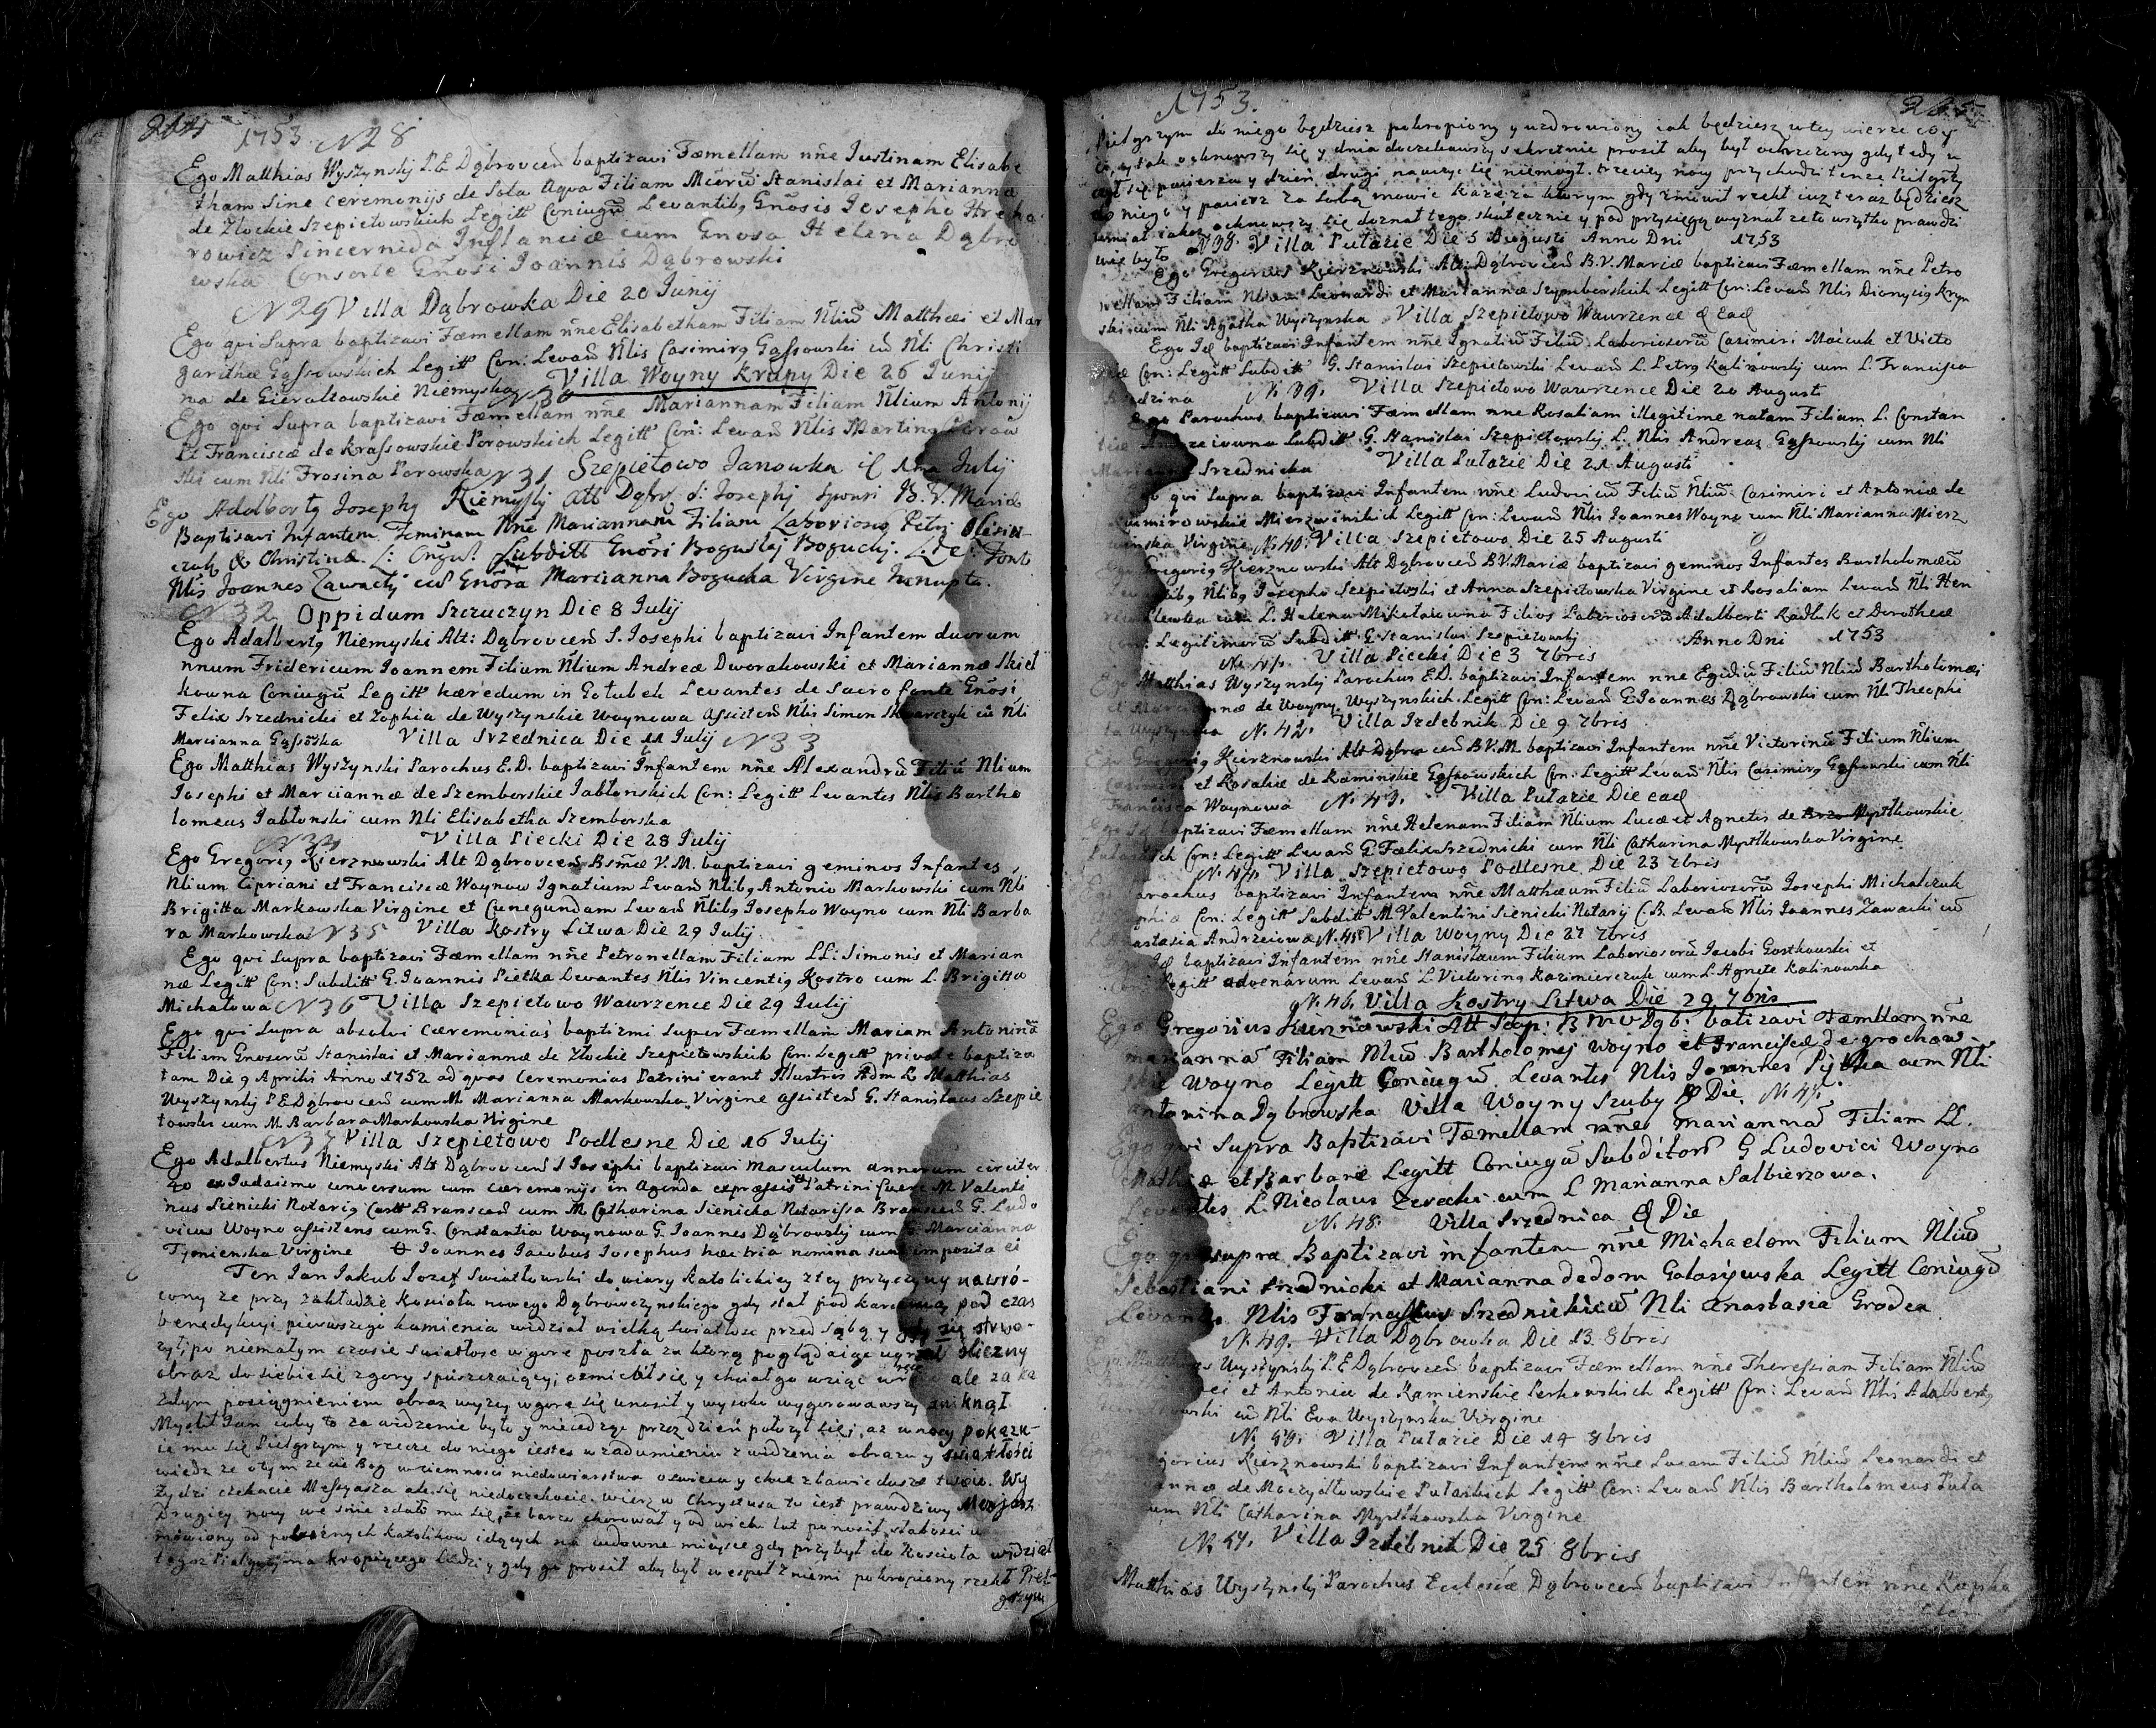 264 1753 N 28
Ego Matthias Wyszynskj P. E Dąbroviceñ baptizavi Fæmellam nñe Justinam Elisabe
tham sine ceremonijs de sola aqva Filiam Gñsorũ Stanislai et Marianna
de Złockie Szepietowskich Legitt Coniugũ Levantibg Gñosis Josepho Hreho
rowicz Pincernida Inflanciæ cum Gnosa Helena Dąbro
wska Consorte Gñosi Joannis Dąbrowski
N 29 Villa Dąbrowka Die 20 Junij
Ego qvi supra baptizavi Fæmellam nñe Elisabetham Filiam Ñliũ Matthæi et Mar
garithæ Gąssowskich Legitt Con: Levañ Ñlis Casimirg Gąssowski cũ Ñli Christi
na de Gieraltowskie Niemyska N 30 Villa Woyny Krupy Die 26 Junij
Ego qvi supra baptizavi Fæmellam nñe Mariannam Filiam Ñlium Antonij
Et Franciscæ de Krassowskie Porowskich Legitt Con: Levañ Ñlis Marting Porow
ski cum Ñli Frosina Porowska N 31 Szepietowo Janowka 1ma Julij
Ego Adalbertg Josephg Niemyskj Alt Dąbr. S. Josephj Sponsi B. V. Mariæ
Baptisavi Infantem Feminam Nñe Mariannam Filiam Laboriosg Petrj Olesiu
czuk & Christinæ L: Cnjgu. Subditt Gnósi Boguslaj Boguckj. L: de: Font
Ñlis Joannes Zawackj cũ Gnósa Marcianna Bogucka Virgine Innupta.
N 32 Oppidum Szczuczyn Die 8 Julij
Ego Adalbertg Niemyski Alt: Dąbroviceñ S. Josephi baptizavi Infantem duorum
nnum Fridericum Joannem Filium Ñlium Andreæ Dworakowski et Mariannæ Skiel
kowna Coniugũ Legitt hæredum in Gołubek Levantes de Sacro fonte Gñosi
Felix Srzednicki et Zophia de Wyszynskie Woynowa assisteñ Ñlis Simon Skwarczyk cũ Ñli
Marcianna Gąssoska Villa Srzednica Die 11 Julij N 33
Ego Matthias Wyszynski Parochus E. D. baptizavi Infantem nñe Alexandrũ Filiũ Nlium
Josephi et Marciannæ de Szemborskie Jabłonskich Con: Legitt Levantes Ñlis Bartho
lomeus Jabłonski cum Nli Elisabetha Szemborska
N 34 Villa Piecki Die 28 Julij
Ego Gregorig Kierznowski Alt Dąbroviceñ Bsmæ V. M. baptizavi geminos Infantes,
Nlium Cipriani et Franciscæ Woynow Ignatium Levañ Nlibg Antonio Markowski cum Ñli
Brigitta Markowska Virgine et Cunegundam Levañ Ñlibg Josepho Woyno cum Ñli Barba
ra Markowska N 35 Villa Kostry Litwa Die 29 Julij
Ego qvi supra baptizavi Fæmellam nñe Petronellam Filiam LL: Simonis et Marian
næ Legitt Con: Subditt G. Joannis Pietka Levantes Ñlis Vincentig Kostro cum L. Brigitta
Michałowa N 36 Villa Szepietowo Wawrzence Die 29 Julij
Ego qvi supra absolvi Cæremonias baptizmi super Fæmellam Mariam Antoninã
Filiam Gnosorũ Stanislai et Mariannæ de Złockie Szepietowskich Con. Legitt private baptiza
tam Die 9 Aprilis Anno 1752 ad quas Ceremonias Patrini erant Illustris Adm R. Matthias
Wyszynskj P. E Dąbroviceñ cum M. Marianna Markowska Virgine assisteñ G. Stanislaus Szepie
towski cum M. Barbara Markowska Virgine
N 37 Villa Szepietowo Podlesne Die 16 Julij
Ego Adalbertus Niemyski Alt Dąbroviceñ S Josephi baptizavi Masculum annorum circiter
20 ex Judaismo conversum cum cæremonijs in Agenda expressis Patrini fuere M Valenti
nus Sienicki Notarig Castr Bransceñ cum M. Catharina Sienicka Notarissa Bransceñ G. Ludo
vicus Woyno assistens cum G. Constantia Woynowa G. Joannes Dąbrowskj cum G. Marcianna
Tymienska Virgine & Joannes Jacobus Josephus hæc tria nomina sunt imposita ei
Ten Jan Jakub Jozef Swiatłowski do wiary katolickiey z tey przyczyny nawró-
cony ze przy zakładzie kosciola nowego Dąbrowczynskiego gdy stał pod karczmą pod czas
benedykcyi pierwszego kamienia widział wielką swiatłosc przed sobą y gdy się stwo-
rzył, po niemałym czasie swiatłosc w gorę poszła za ktorą poglądaiąc uyrzał sliczny
obraz do siebie się z gory spuszczaiący; osmielił się y chciał go wziąć w ręce ale za ka
zdym posiągnieniem obraz wyzey w gorę się unosił y wysoko wygorowawszy zniknął.
Myslił Jan coby to za widzenie było y niedzgę przez dzień położył się; az w nocy pokazu-
ie mu się Pielgrzym y rzecze do niego iestes w zadumieniu z widzenia obrazu y swiatłości
wiedz ze otym ze cie Bog w ciemnosci niedowiarstwa oswieca y chce zbawic duszę twoię. Wy
Zydzi czekacie Messyasza ale się niedoczekacie. wierz w Chrystusa to iest prawdziwy Messyasz
Drugiey nocy we snie zdało mu się, ze barzo chorował y od wielu lat ponosił słabosci u
mowiony od poboznych katolikow idących na cudowne mieysce gdy przybył do kosciola widział
tegoz Pielgrzyma kropiącego ludzi y gdy go prosił aby był wespoł z niemi pokropiony rzekł Piel-
grzym
1753. 265
Pielgrzym do niego będziesz pokropiony y uzdrowiony iak będziesz w tey wierze coy
ia, y tak ocknowszy się y dnia doczekawszy sekretnie prosił aby był ochrzczony gdy tedy u
czył się pacierza y dzień drugi nauczyc się niemogł. trzeciey nocy przychodzi tenze Pielgrzy
do niego y pacierz za sobą mowic każe za ktorym gdy zmowił rzekł iuz teraz będziesz
umiał iakoz ocknowszy się doznał tego skutecznie y pod przysięgą wyznał ze to wszytko prawdzi
wie było N 38. Villa Pułazie Die 5 Augusti Anno Dni 1753
Ego Gregorius Kierznowski Alt: Dąbroviceñ B. V. Mariæ baptizavi Fæmellam nñe Petro
nellam Filiam Nlium Leonardi et Mariannæ Szymborskich Legitt Con: Levañ Ñlis Dionycig Kryn
ski cum Ñli Agatha Wyszynska Villa Szepietowo Wawrzence d ead
Ego Id baptizavi Infantem nñe Ignatiũ Filiũ Laboriosorũ Casimiri Maicuk et Victo
Con: Legitt Subditt G. Stanislai Szepietowski Levañ L. Petrg Kalinowskj cum L. Francisca
N. 39. Villa Szepietowo Wawrzence Die 20 Augusti
Ego Parochus baptizavi Fæmellam nne Rosaliam illegitime natam Filiam L. Constan
tiæ Subditt G. Stanislai Szepietowskj L. Nlis Andreas Gąssowskj cum Nli
Srzednicka Villa Pułazie Die 21 Augusti
qvi supra baptizavi Infantem nñe Ludovicũ Filiũ Ñliũ Casimiri et Antoniæ de
Mierzwinskich Legitt Con: Levañ Ñlis Joannes Woyno cum Ñli Marianna Mierz
winska Virgine N. 40. Villa Szepietowo Die 25 Augusti
Gregorig Kierznowski Alt Dąbroviceñ B V. Mariæ baptizavi geminos Infantes Bartholomæũ
Ñlibg Josepho Szepietowski et Anna Szepietowska Virgine et Rosaliam Levañ Ñli Hen
Plewka cum L. Helena Mikołaiowna Filios Laboriosorũ Adalberti Radluk et Dorotheæ
Legitimorũ Subditt G. Stanislai Szepietowskj Anno Dni 1753
N. 41. Villa Piecki Die 3 7bris
Ego Matthias Wyszynskj Parochus E. D. baptizavi Infantem nñe Egidiũ Filiũ Nliũ Bartholomæj
et Mariannæ de Woyny Wyszynskich Legitt Con: Levañ G. Joannes Dąbrowski cum Ñli Theophi
la Wyszynska N. 42. Villa Izdebnik Die 9 7bris
Ego Gregorig Kierznowski Alt Dąbroviceñ B V. M. baptizavi Infantem nñe Victorinũ Filium Ñlium
Casimiri et Rosaliæ de Kaminskie Gąssowskich Con: Legitt Levañ Ñlis Casimirg Gąssowski cum Ñli
Francisca Woynowa N. 43. Villa Pułazie Die ead
Ego Id baptizavi Fæmellam nñe Helenam Filiam Nlium Lucæ et Agnetis de Mystkowskie
Pułaskich Con: Legitt Levañ G. Fælix Srzednicki cum Ñli Catharina Mystkowska Virgine
N. 44. Villa Szepietowo Podlesne Die 23 7bris
Parochus baptizavi Infantem nñe Matthæum Filiũ Laboriosorũ Josephi Michalczuk
Con: Legitt Subditt M. Valentini Sienicki Notarij C. B. Levañ Ñlis Joannes Zawacki cũ
L. Anastasia Andrzeiowa N. 45. Villa Woyny Die 27 7bris
Id baptizavi Infantem nñe Stanislaum Filium Laboriosorũ Jacobi Gostkowski et
Legitt advenarum Levañ L Victoring Kazimierczuk cum L Agnete Kalinowska
N. 46. Villa Kostry Litwa Die 29 7bris
Ego Gregorius Kierznowski Alt Scap: B M V Dąb: batizavi Fæmellam nñe
mariannã Filiam Nliũ Bartholomej Woyno et Franciscæ de grochow
skie Woyno Legitt Coniugũ. Levantes Nlis Joannes Pijtka cum Nli
antonina Dąbrowska Villa Woyny Szuby Die. N. 47.
Ego qvi supra Baptizavi Fæmellam nñe mariannã Filiam LL.
Mathiæ et Barbaræ Legitt Coniugũ Subditorũ G Ludovici Woyno
Levantes L. Nicolaus Zerecki cum L Marianna Salbierzowa.
N. 48. Villa Srzednica Die
Ego qvi supra Baptizavi infantem nñe Michaelem Filium Nliũ
Sebastiani Srzednicki et Marianna dedom Gołasgewska Legitt Coniugũ
Levantes Nlis Franciskus Srzednicki cũ Nli anastasia Grodea
N. 49. Villa Dąbrowka Die 13. 8bris
Ego Matthias Wyszynskj P. E Dąbroviceñ baptizavi Fæmellam nñe Theressiam Filiam Ñliũ
et Antoniæ de Kamienskie Perkowskich Legitt Con: Levañ Ñlis Adalbertg
cũ Ñli Eva Wyszynska Virgine
N. 50. Villa Pułazie Die 14 8bris
Gregorius Kierznowski baptizavi Infantem nñe Lucam Filiũ Nliũ Leonardi et
de Moczydłowskie Pułaskich Legitt Con: Levañ Ñlis Bartholomeus Puła
cum Ñli Catharina Mystkowska Virgine
N. 51. Villa Izdebnik Die 25 8bris
Matthias Wyszynskj Parochus Eclesiæ Dąbroviceñ baptizavi Infantem nñe Rapha
elem